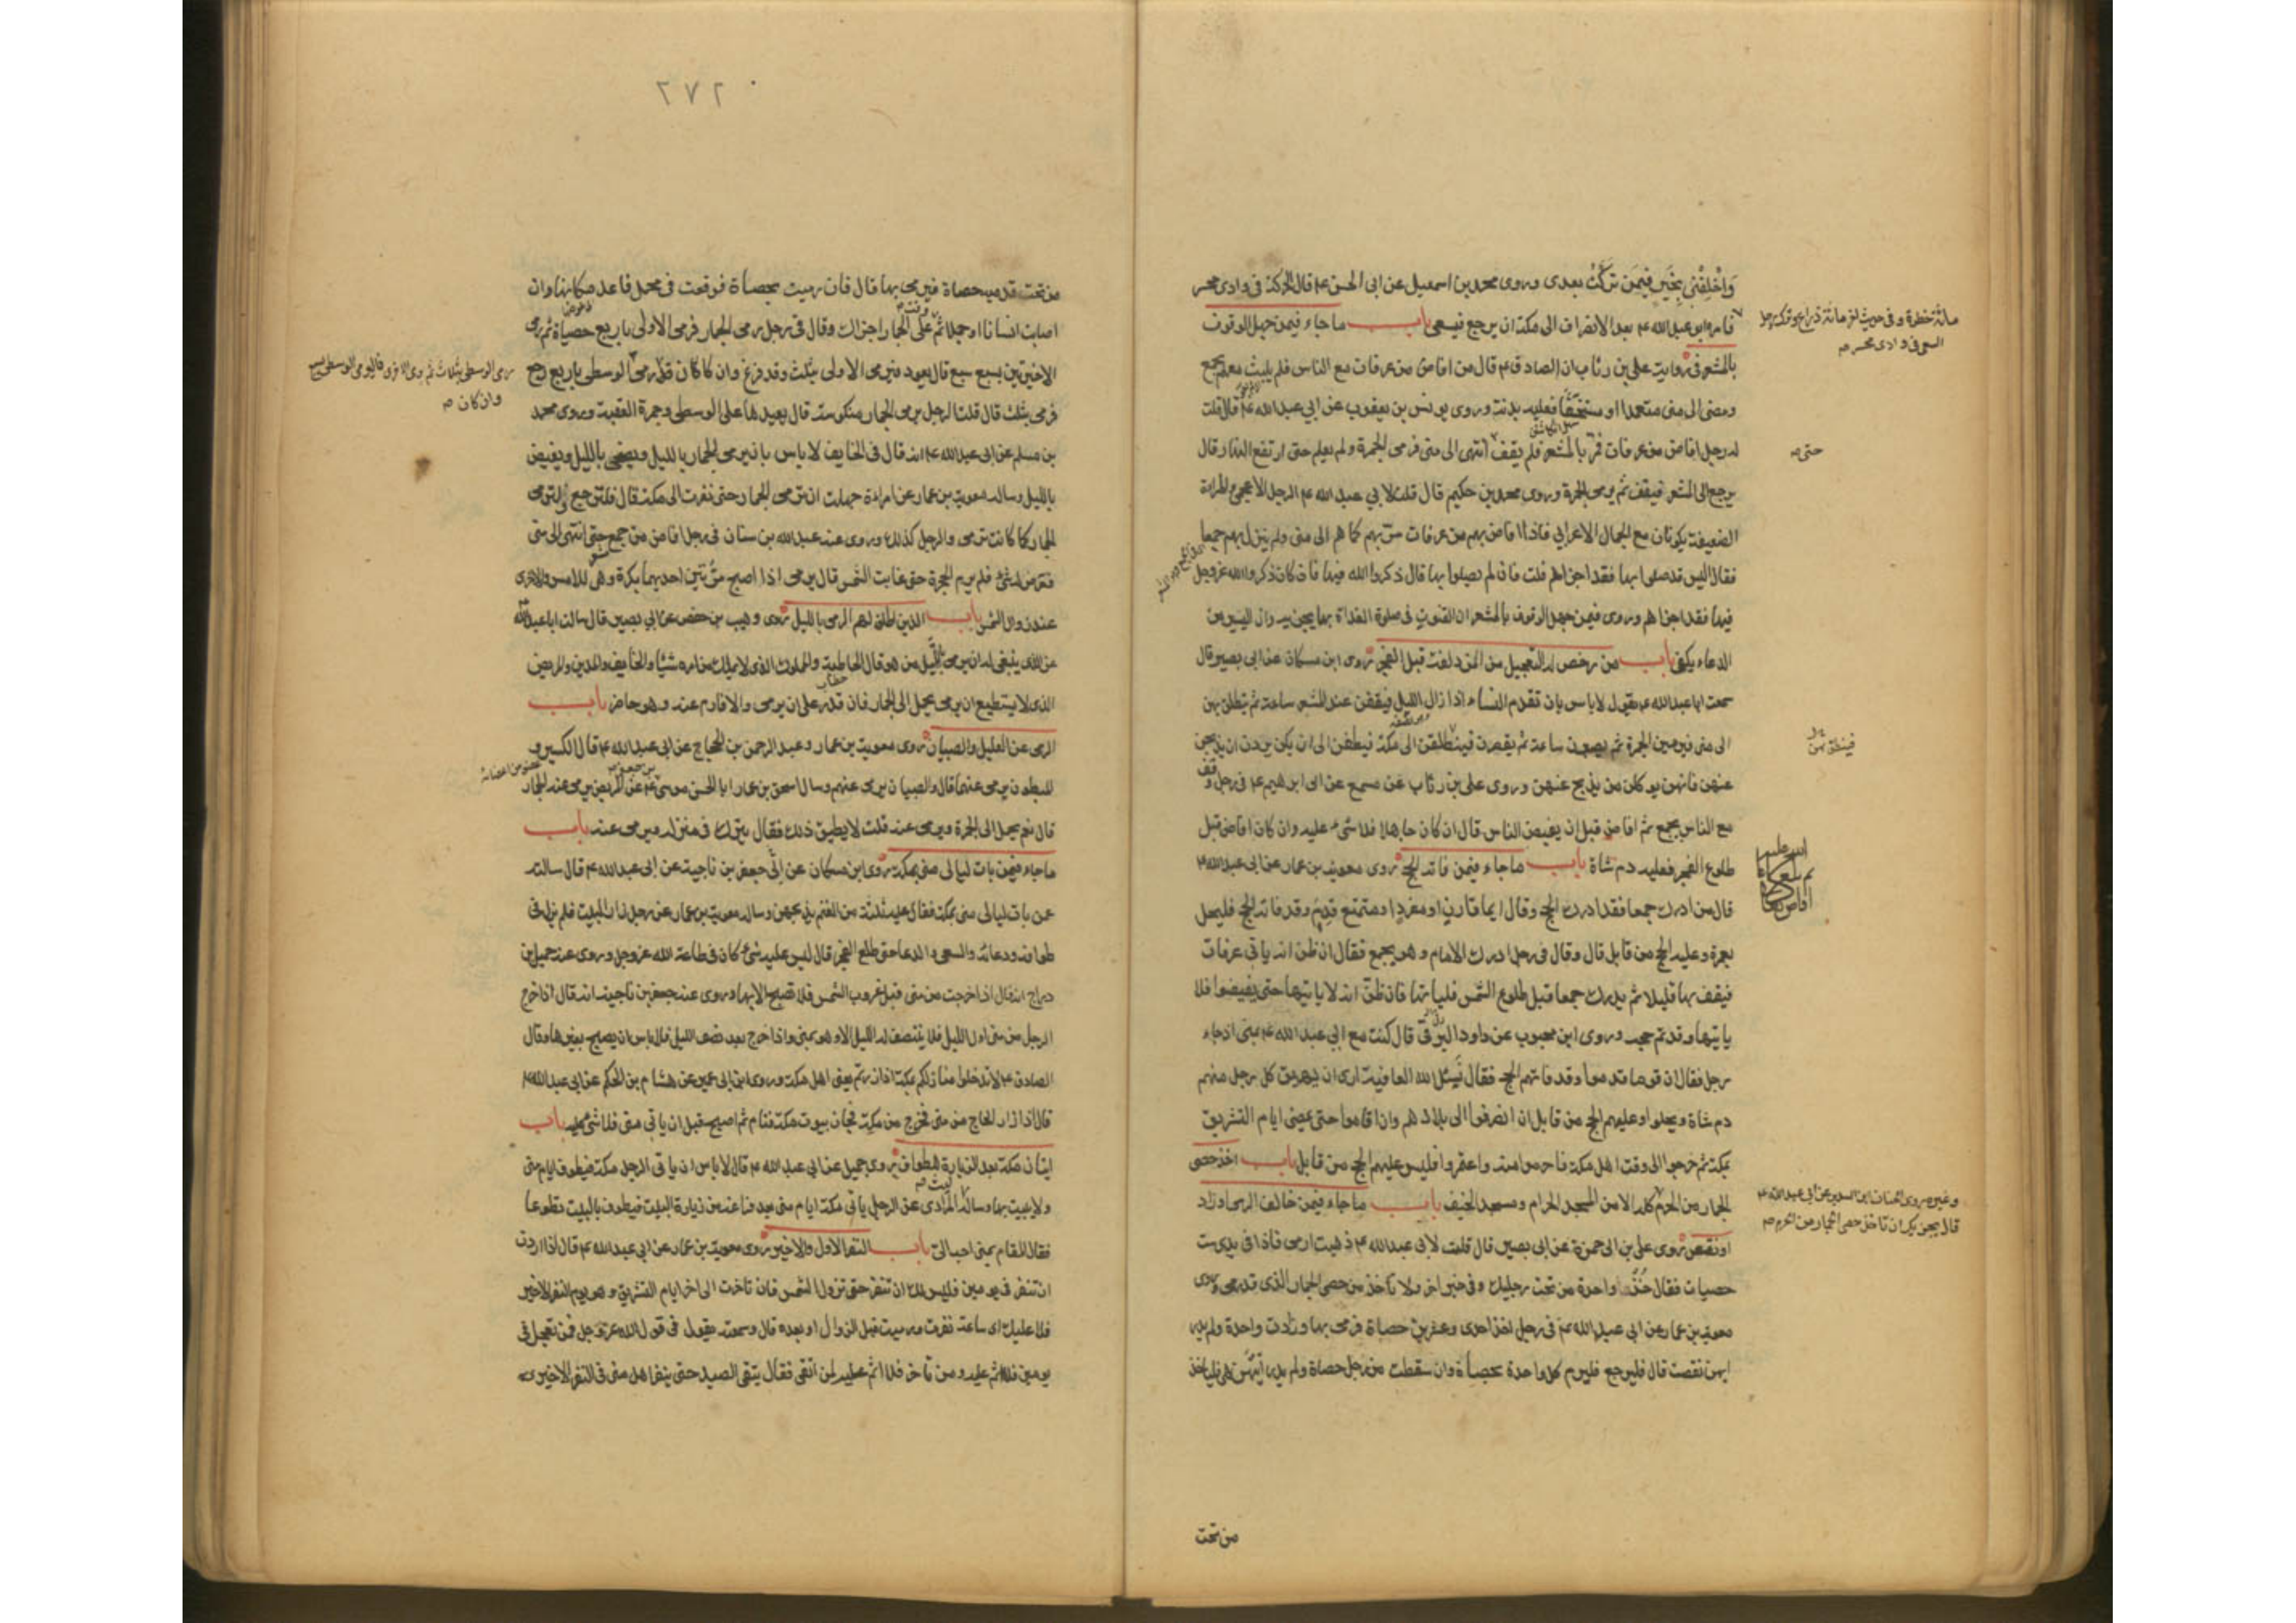 وَاخْلُفْنِي بِخَيْرٍ فِيمَنْ تَرَكْتُ بعدى وروى محمد بن اسمعيل عن ابى الحسن ع قال الحركة فى وادى محسر
مائة خطوة وفى حديث اخر مائة ذراع وترك رجل
السعى فى وادى محسر صح
فامره ابو عبد الله ع بعد الانصراف الى مكة ان يرجع فيسعى باب ما جاء فيمن جهل الوقوف
بالمشعر فى رواية على بن رئاب ان الصادق ع قال من افاض من عرفات مع الناس فلم يلبث معهم بجمع
ومضى الى منى متعمدا او مستخفا فعليه بدنة وروى يونس بن يعقوب عن ابي عبد الله ع قال قلت
له رجل افاض من عرفات فمر بالمشعر فلم يقف انتهى الى منى فرمى الجمرة ولم يعلم حتى ارتفع النهار قال
حتى صح
يرجع الى المشعر فيقف ثم يرمى الجمرة وروى محمد بن حكيم قال قلت لابي عبد الله ع الرجل الاعجمى والمراة
الضعيفة يكونان مع الجمال الاعرابي فاذا افاض بهم من عرفات مر بهم كما هم الى منى ولم ينزل بهم جمعا
فقال اليس قد صلوا بها فقد اجزاهم قلت فان لم يصلوا بها قال ذكروا الله فيها فان كان ذكروا الله عز وجل
فيها فقد اجزاهم وروى فيمن جهل الوقوف بالمشعر ان القنوت فى صلوة الغداة بها يجزيه وان اليسير من
الدعاء يكفى باب من رخص له التعجيل من المزدلفة قبل الفجر روى ابن مسكان عن ابى بصير قال
سمعت ابا عبد الله ع يقول لا باس بان تقدم النساء اذا زال الليل فيقفن عند المشعر ساعة ثم ينطلق بهن
الى منى فيرمين الجمرة ثم يصبرن ساعة ثم يقصرن فينطلقن الى مكة فيطفن الى ان يكن يردن ان يذبحن
عنهن فانهن يوكلن من يذبح عنهن وروى على بن رئاب عن مسمع عن ابى ابرهيم ع فى رجل وقف
مع الناس بجمع ثم افاض قبل ان يفيض الناس قال ان كان جاهلا فلا شىء عليه وان كان افاض قبل
طلوع الفجر فعليه دم شاة باب ما جاء فيمن فاته الحج روى معوية بن عمار عن ابى عبد الله ع
قال من ادرك جمعا فقد ادرك الحج وقال ايما قارن او مفرد او متمتع قدم وقد فاته الحج فليحل
بعمرة وعليه الحج من قابل قال وقال فى رجل ادرك الامام وهو بجمع فقال ان ظن انه ياتى عرفات
فيقف بها قليلا ثم يدرك جمعا قبل طلوع الشمس فلياتها فان ظن انه لا ياتيها حتى يفيضوا فلا
ياتيها وقد تم حجه وروى ابن محبوب عن داود الرقى قال كنت مع ابي عبد الله ع بمنى اذ جاء
رجل فقال ان قوما قدموا وقد فاتهم الحج فقال نسئل الله العافية ارى ان يهريق كل رجل منهم
دم شاة ويحلوا وعليهم الحج من قابل ان انصرفوا الى بلادهم وان اقاموا حتى يمضى ايام التشريق
بمكة ثم خرجوا الى وقت اهل مكة فاحرموا منه واعتمروا فليس عليهم الحج من قابل باب اخذ حصى
الجمار من الحرم كله الا من المسجد الحرام ومسجد الخيف باب ما جاء فيمن خالف الرمى وزاد
قال يجزيك ان تاخذ حصى الجمار من الحرم صح
او نقص روى على بن ابى حمزة عن ابى بصير قال قلت لابى عبد الله ع ذهبت ارمى فاذا فى يدى ست
حصيات فقال خذ واحدة من تحت رجليك وفى خبر اخر ولا تاخذ من حصى الجمار الذى قد رمى وروى
معوية بن عمار عن ابى عبد الله ع فى رجل اخذ احدى وعشرين حصاة فرمى بها وزادت واحدة ولم يدر
ايهن نقصت قال فليرجع فليرم كل واحدة بحصاة وان سقطت من رجل حصاة ولم يدر ايتهن هى فلياخذ
من تحت
٢٧٢
من تحت قدميه حصاة فيرمى بها قال فان رميت بحصاة فوقعت فى محمل فاعد مكانها وان
اصابت انسانا او جملا ثم على الجمار اجزاك وقال فى رجل رمى الجمار فرمى الاولى باربع حصياة ثم رمى
الاخيرتين بسبع سبع قال يعود فيرمى الاولى بثلث وقد فرغ وان كان قد رمى الوسطى باربع رجع
وان كان صح
فرمى بثلث قال قلت الرجل يرمى الجمار منكوسة قال يعيدها على الوسطى وجمرة العقبة وروى محمد
بن مسلم عن ابى عبد الله ع انه قال فى الخايف لا باس بان يرمى الجمار بالليل ويضحى بالليل ويفيض
بالليل وساله معوية بن عمار عن امراءة جهلت ان ترمى الجمار حتى نفرت الى مكة قال فلترجع ولترمى
الجمار كما كانت ترمى والرجل كذلك وروى عنه عبد الله بن سنان فى رجل افاض من جمع حتى انتهى الى منى
فعرض له شىء فلم يرم الجمرة حتى غابت الشمس قال يرمى اذا اصبح مرتين احديهما بكرة وهى للامس والاخرى
عند زوال الشمس باب الذين اطلق لهم الرمى بالليل روى وهيب بن حفص عن ابى بصير قال سالت ابا عبد الله
عن الذى ينبغى له ان يرمى بالليل من هو قال الحاطبة والمملوك الذى لا يملك من امره شيئا والخايف والمدين والمريض
الذى لا يستطيع ان يرمى يحمل الى الجمار فان قدر على ان يرمى والا فارم عنه وهو حاضر باب
الرمى عن العليل والصبيان روى معوية بن عمار وعبد الرحمن بن الحجاج عن ابى عبد الله ع قال الكسير و
المبطون يرمى عنهما قال والصبيان يرمى عنهم وسال اسحق بن عمار ابا الحسن موسى ع عن المريض يرمى عنه الجمار
قال نعم يحمل الى الجمرة ويرمى عنه قلت لا يطيق ذلك فقال يترك فى منزله ويرمى عنه باب
ما جاء فيمن بات ليالى منى بمكة روى ابن مسكان عن جعفر بن ناجية عن ابى عبد الله ع قال سالته
عمن بات ليالى منى بمكة فقال عليه ثلثة من الغنم يذبحهن وساله معوية بن عمار عن رجل زار البيت فلم يزل فى
طوافه ودعائه والسعى والدعا حتى طلع الفجر قال ليس عليه شئ كان فى طاعة الله عز وجل وروى عنه جميل بن
دراج انه قال اذا خرجت من منى قبل غروب الشمس فلا تصبح الا بها وروى عنه جعفر بن ناجية انه قال اذا خرج
الرجل من منى اول الليل فلا ينتصف له الليل الا وهو بمنى واذا خرج بعد نصف الليل فلا باس ان يصبح بغيرها وقال
الصادق ع لا تدخلوا منازلكم بمكة اذا زرتم يعنى اهل مكة وروى ابن ابى عمير عن هشام بن الحكم عن ابى عبد الله ع
قال اذا زار الحاج من منى فخرج من مكة فجاز بيوت مكة فنام ثم اصبح قبل ان ياتى منى فلا شئ عليه باب
اتيان مكة بعد الزيارة للطواف روى جميل عن ابى عبد الله ع قال لا باس ان ياتى الرجل مكة فيطوف ايام منى
ولا يبيت بها وساله ليث المرادى عن الرجل ياتى مكة ايام منى بعد فراغه من زيارة البيت فيطوف بالبيت تطوعا
فقال المقام بمنى احب الى باب النفر الاول والاخير روى معوية بن عمار عن ابى عبد الله ع قال اذا اردت
ان تنفر فى يومين فليس لك ان تنفر حتى تزول الشمس فان تاخرت الى اخر ايام التشريق وهو يوم النفر الاخير
فلا عليك اى ساعة نفرت ورميت قبل الزوال او بعده قال وسمعته يقول فى قول الله عز وجل فمن تعجل فى
يومين فلا اثم عليه ومن تاخر فلا اثم عليه لمن اتقى فقال يتقى الصيد حتى ينفر اهل منى فى النفر الاخير